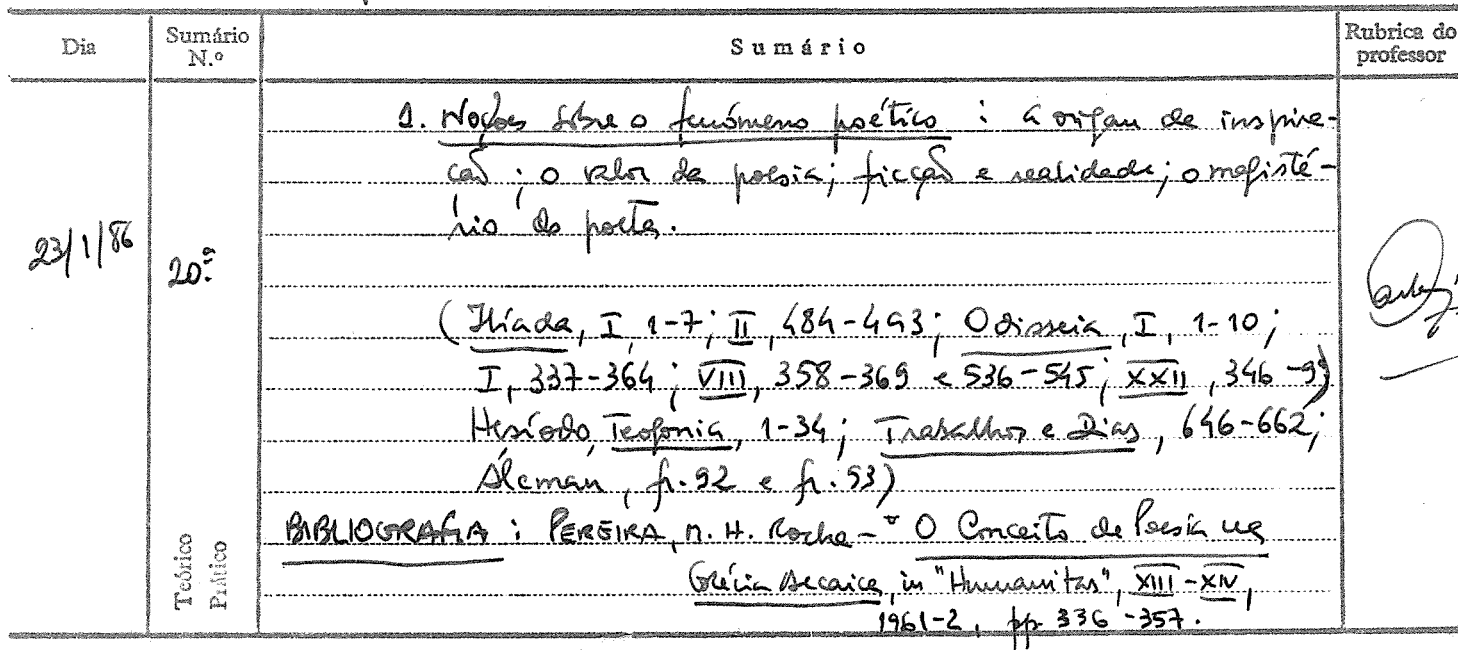 Dia
Sumário N.º
Sumário
Rubrica do professor
23/1/86
20.ª
Teórico
Prático
1. Noções sobre o fenómeno poético : a origem da inspira-
ção ; o valor da poesia; ficção e realidade; o magisté-
rio do poeta.
(Ilíada, I, 1-7; II, 484-493; Odisseia, I, 1-10;
I, 337-364; VIII, 358-369 e 536-545; XXII, 346-9)
Hesíodo, Teogonia, 1-34; Trabalhos e Dias, 646-662;
Álcman, fr. 92 e fr. 93)
BIBLIOGRAFIA : PEREIRA, M. H. Rocha - O Conceito de Poesia na
Grécia Arcaica, in "Humanitas", XIII-XIV,
1961-2, pp. 336-357.